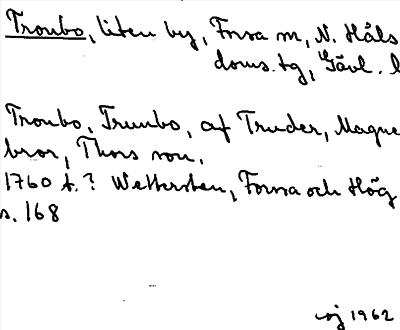 Tronbo, liten by, Forsa sn, N. Häls
doms. tg, Gävl. l
Tronbo, Trunbo, af Truder, Magne
bror, Thors son.
1760 t.? Wettersten, Forsa och Hög
s. 168
1962